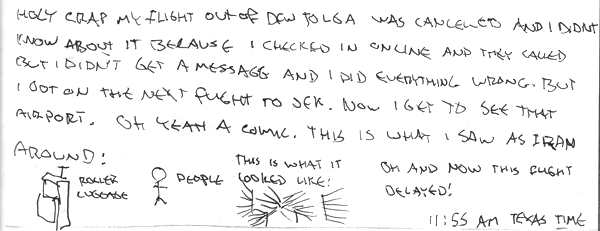 HOLY CRAP MY FLIGHT OUT OF DFW TO LGA WAS CANCELED AND I DIDNT
KNOW ABOUT IT BECAUSE I CHECKED IN ONLINE AND THEY CALLED
BUT I DIDN'T GET A MESSAGE AND I DID EVERYTHING WRONG. BUT
I GOT ON THE NEXT FLIGHT TO JFK. NOW I GET TO SEE THAT
AIRPORT. OH YEAH A COMIC. THIS IS WHAT I SAW AS I RAN
AROUND!
ROLLER
LUGGAGE
PEOPLE
THIS IS WHAT IT
LOOKED LIKE!
OH AND NOW THIS FLIGHT
DELAYED!
11:55 AM TEXAS TIME